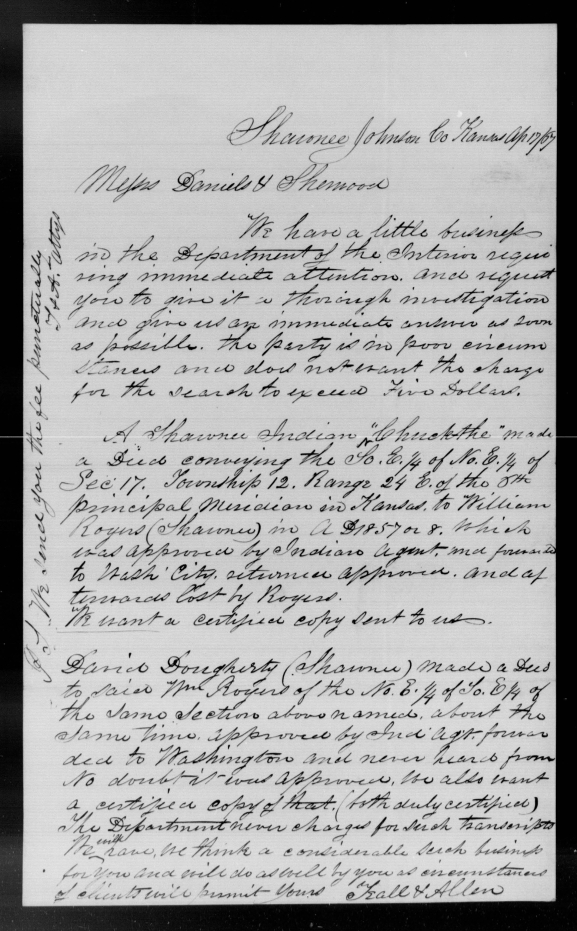 Shawnee Johnson Co Kansas Ap 17/67
Messrs Daniels & Sherwood
We have a little business
in the Department of the Interior requi
ring immediate attention. and request
you to give it a thorough investigation
and give us an immediate answer as soon
as possible. the party is in poor circum
stances and does not want the charge
for the search to exceed Five Dollars.
A Shawnee Indian "Chuck-the" made
a Deed conveying the So. E. 1/4 of No. E. 1/4 of
Sec 17. Township 12. Range 24 E. of the 6th
principal Meridian in Kansas. to William
Rogers (Shawnee) in A D 1857 or 8. Which
was approved by Indian Agent. and forwarded
to Wash City. returned approved. and af
terwards lost by Rogers.
We want a certified copy sent to us.
David Dougherty (Shawnee) made a Deed
to said Wm Rogers of the No. E. 1/4 of So. E 1/4 of
the same section above named. about the
same time. approved by Ind Agt. forwar
ded to Washington and never heard from
No doubt it was approved. We also want
a certified copy of that. (both duly certified)
The Department never charges for such transcripts
We will have, we think a considerable such business
for you and will do as well by you as circumstances
of clients will permit Yours &Allen
P.S. We send you the fee punctually
Attys